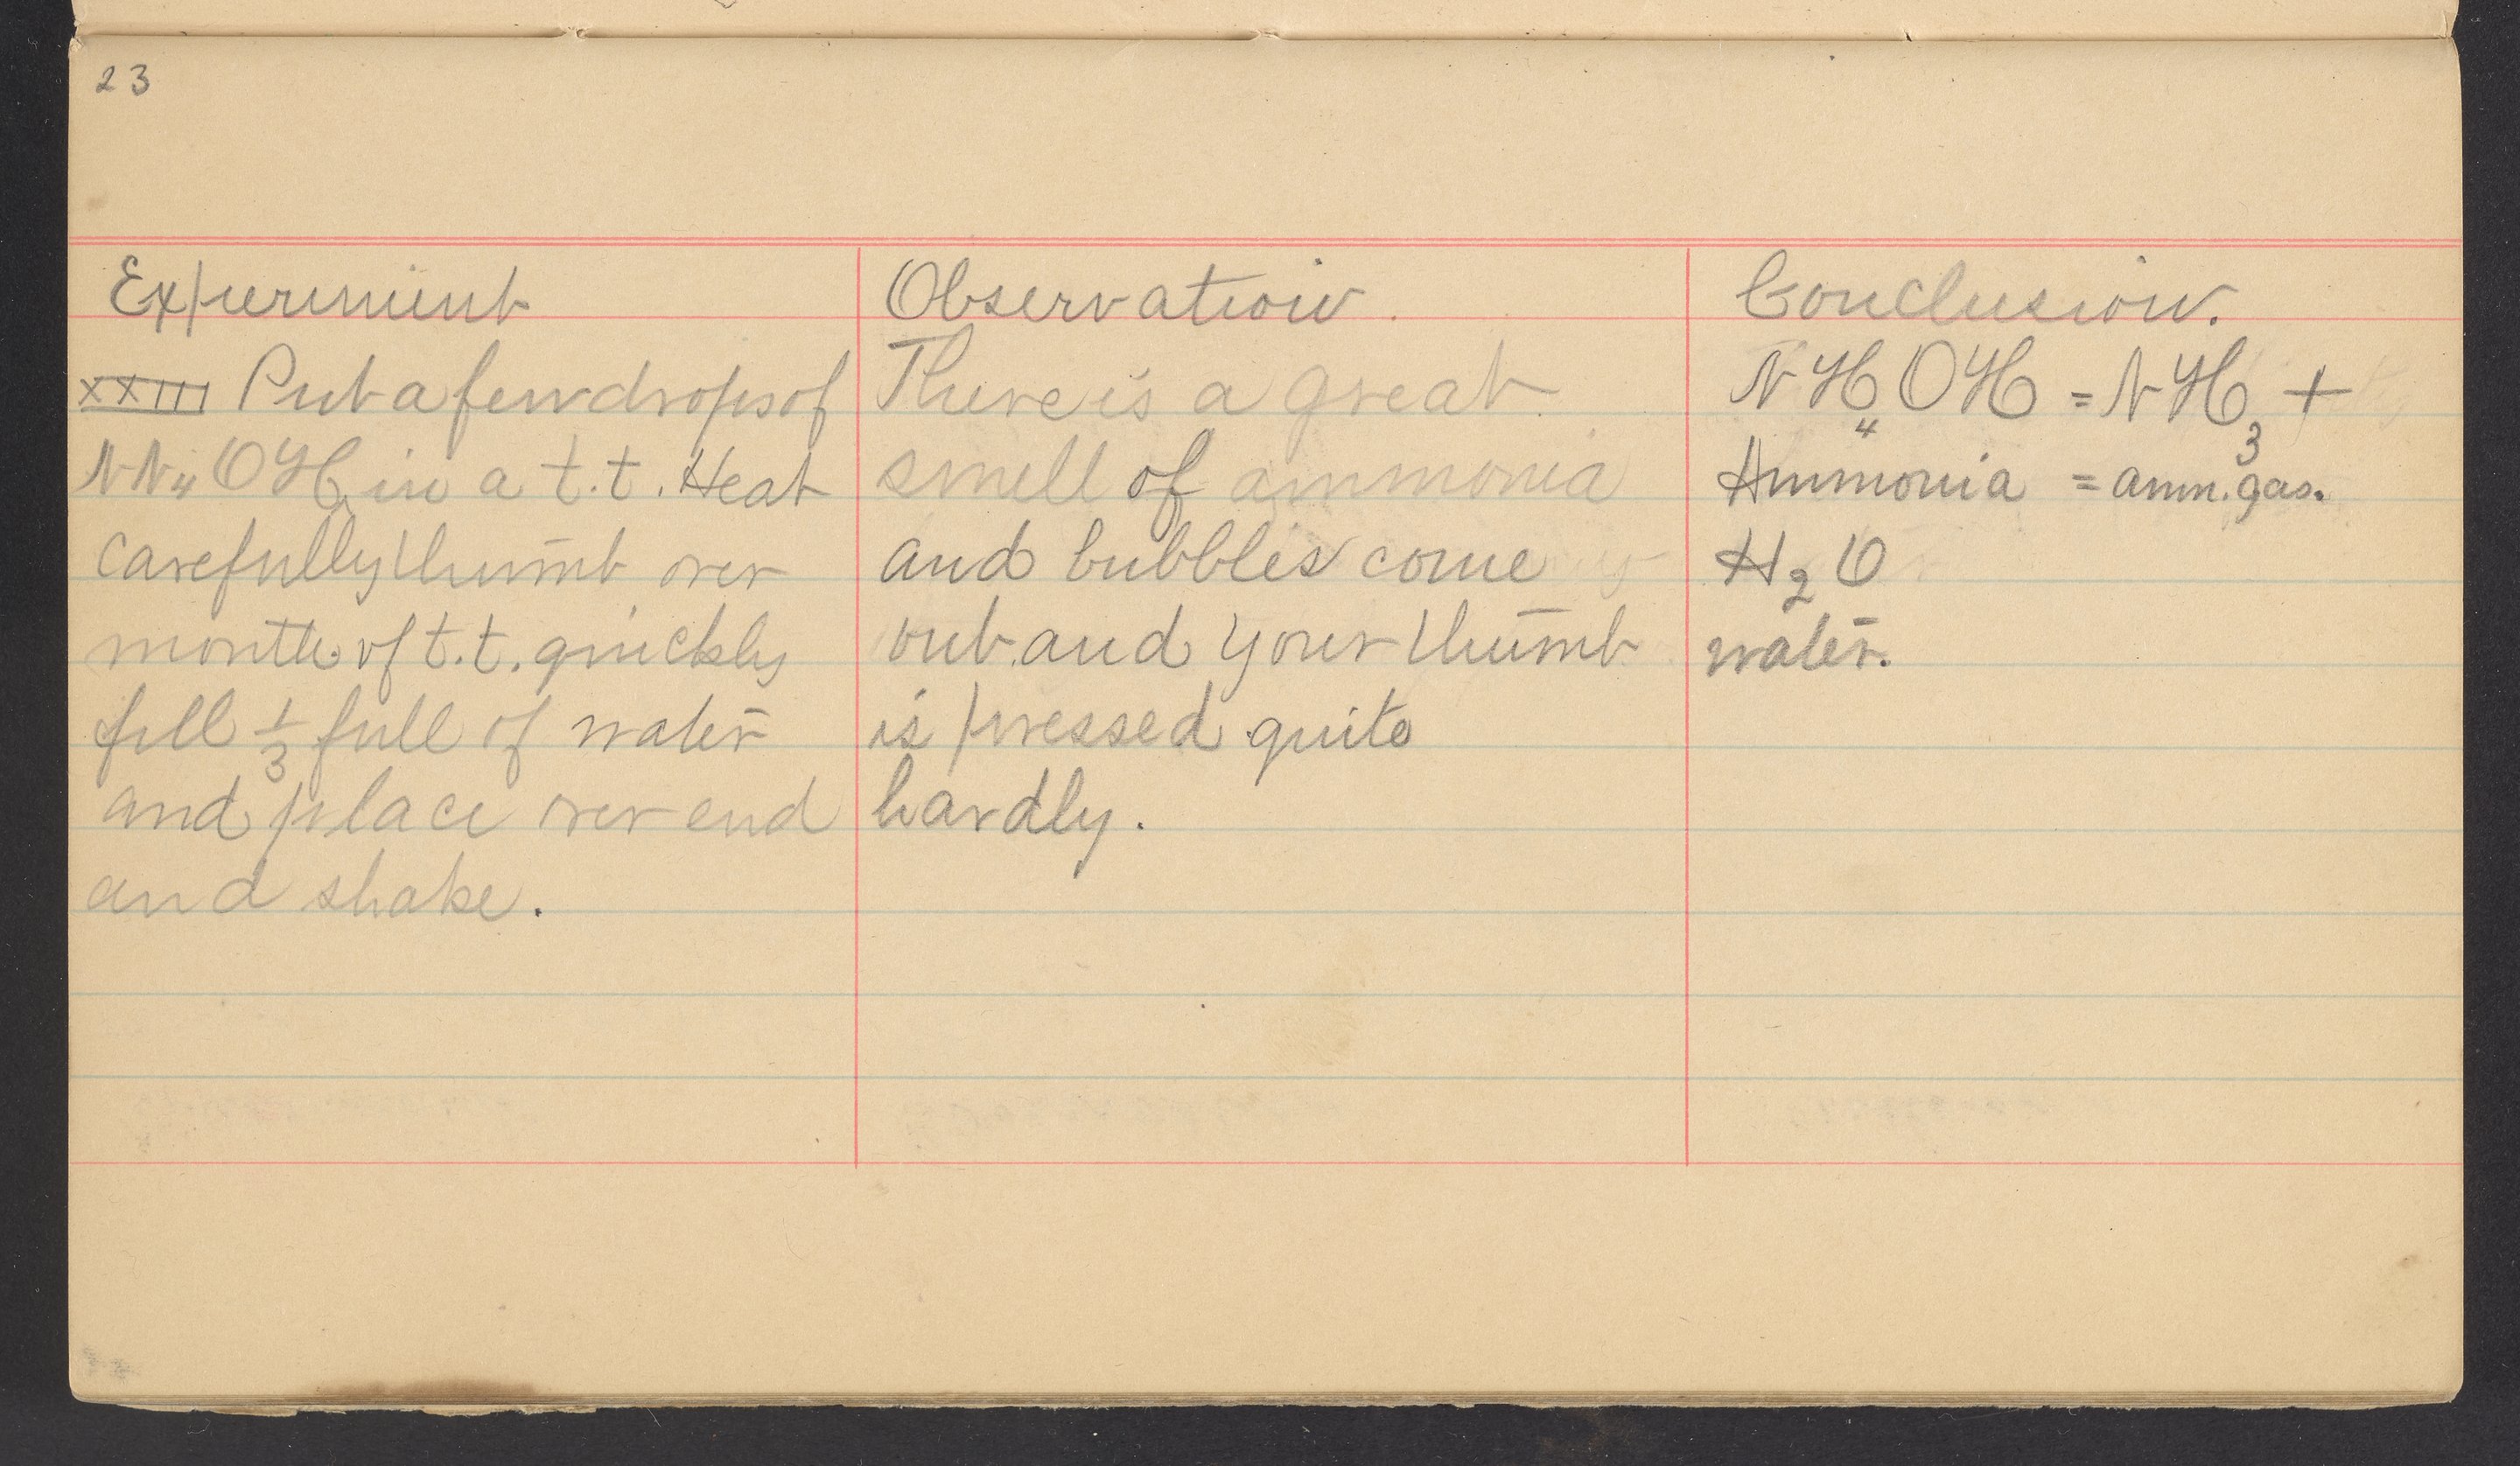 23
Experiment
XXIII Put a few drops of
NN4 OH in a t.t. Heat
carefully thumb over
mouth of t.t. quickly
fill 1/3 full of water
and place over end
and shake.
Observation.
There is a great
smell of ammonia
and bubbles come
out and your thumb
is pressed quite
hardly.
Conclusion.
NH4OH = NH3 +
Ammonia = amm. gas.
H2O
water.